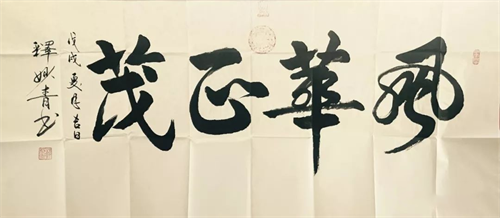 風華正茂
戊戌夏月吉日
釋妙青书